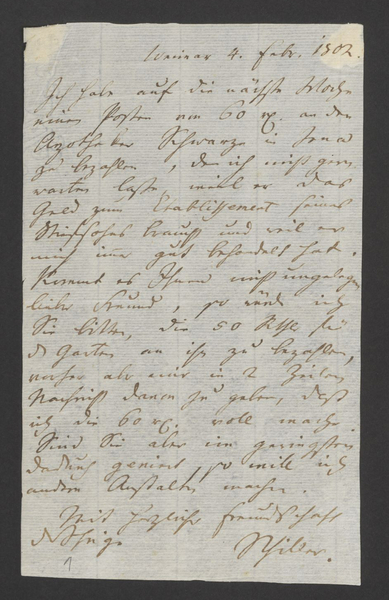 Weimar 4. Febr. 1802.
Ich habe auf die nächste Woche
einen Posten von 60 rh. an den
Apotheker Schwarze in Jena
zu bezahlen, den ich nicht gern
warten lasse weil er das
Geld zum Etablissement seines
Stiefsohns braucht und weil er
mich immer gut behandelt hat.
Kommt es Ihnen nicht ungelegen
lieber Freund, so würde ich
Sie bitten, die 50 Rthl. für
d Garten an ihn zu bezahlen,
vorher aber mir in 2 Zeilen
Nachricht davon zu geben, daß
ich die 60 rh. voll mache.
Sind Sie aber im geringsten
dadurch geniert, so will ich
andere Anstalten machen.
Mit herzlicher Freundschaft
d Ihrige
Schiller.
1